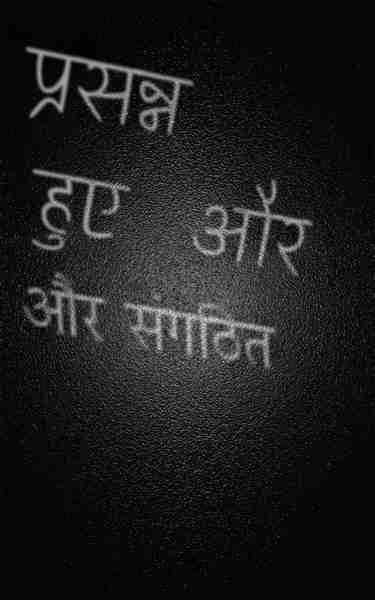 प्रसन्न
हुए और
और संगठित